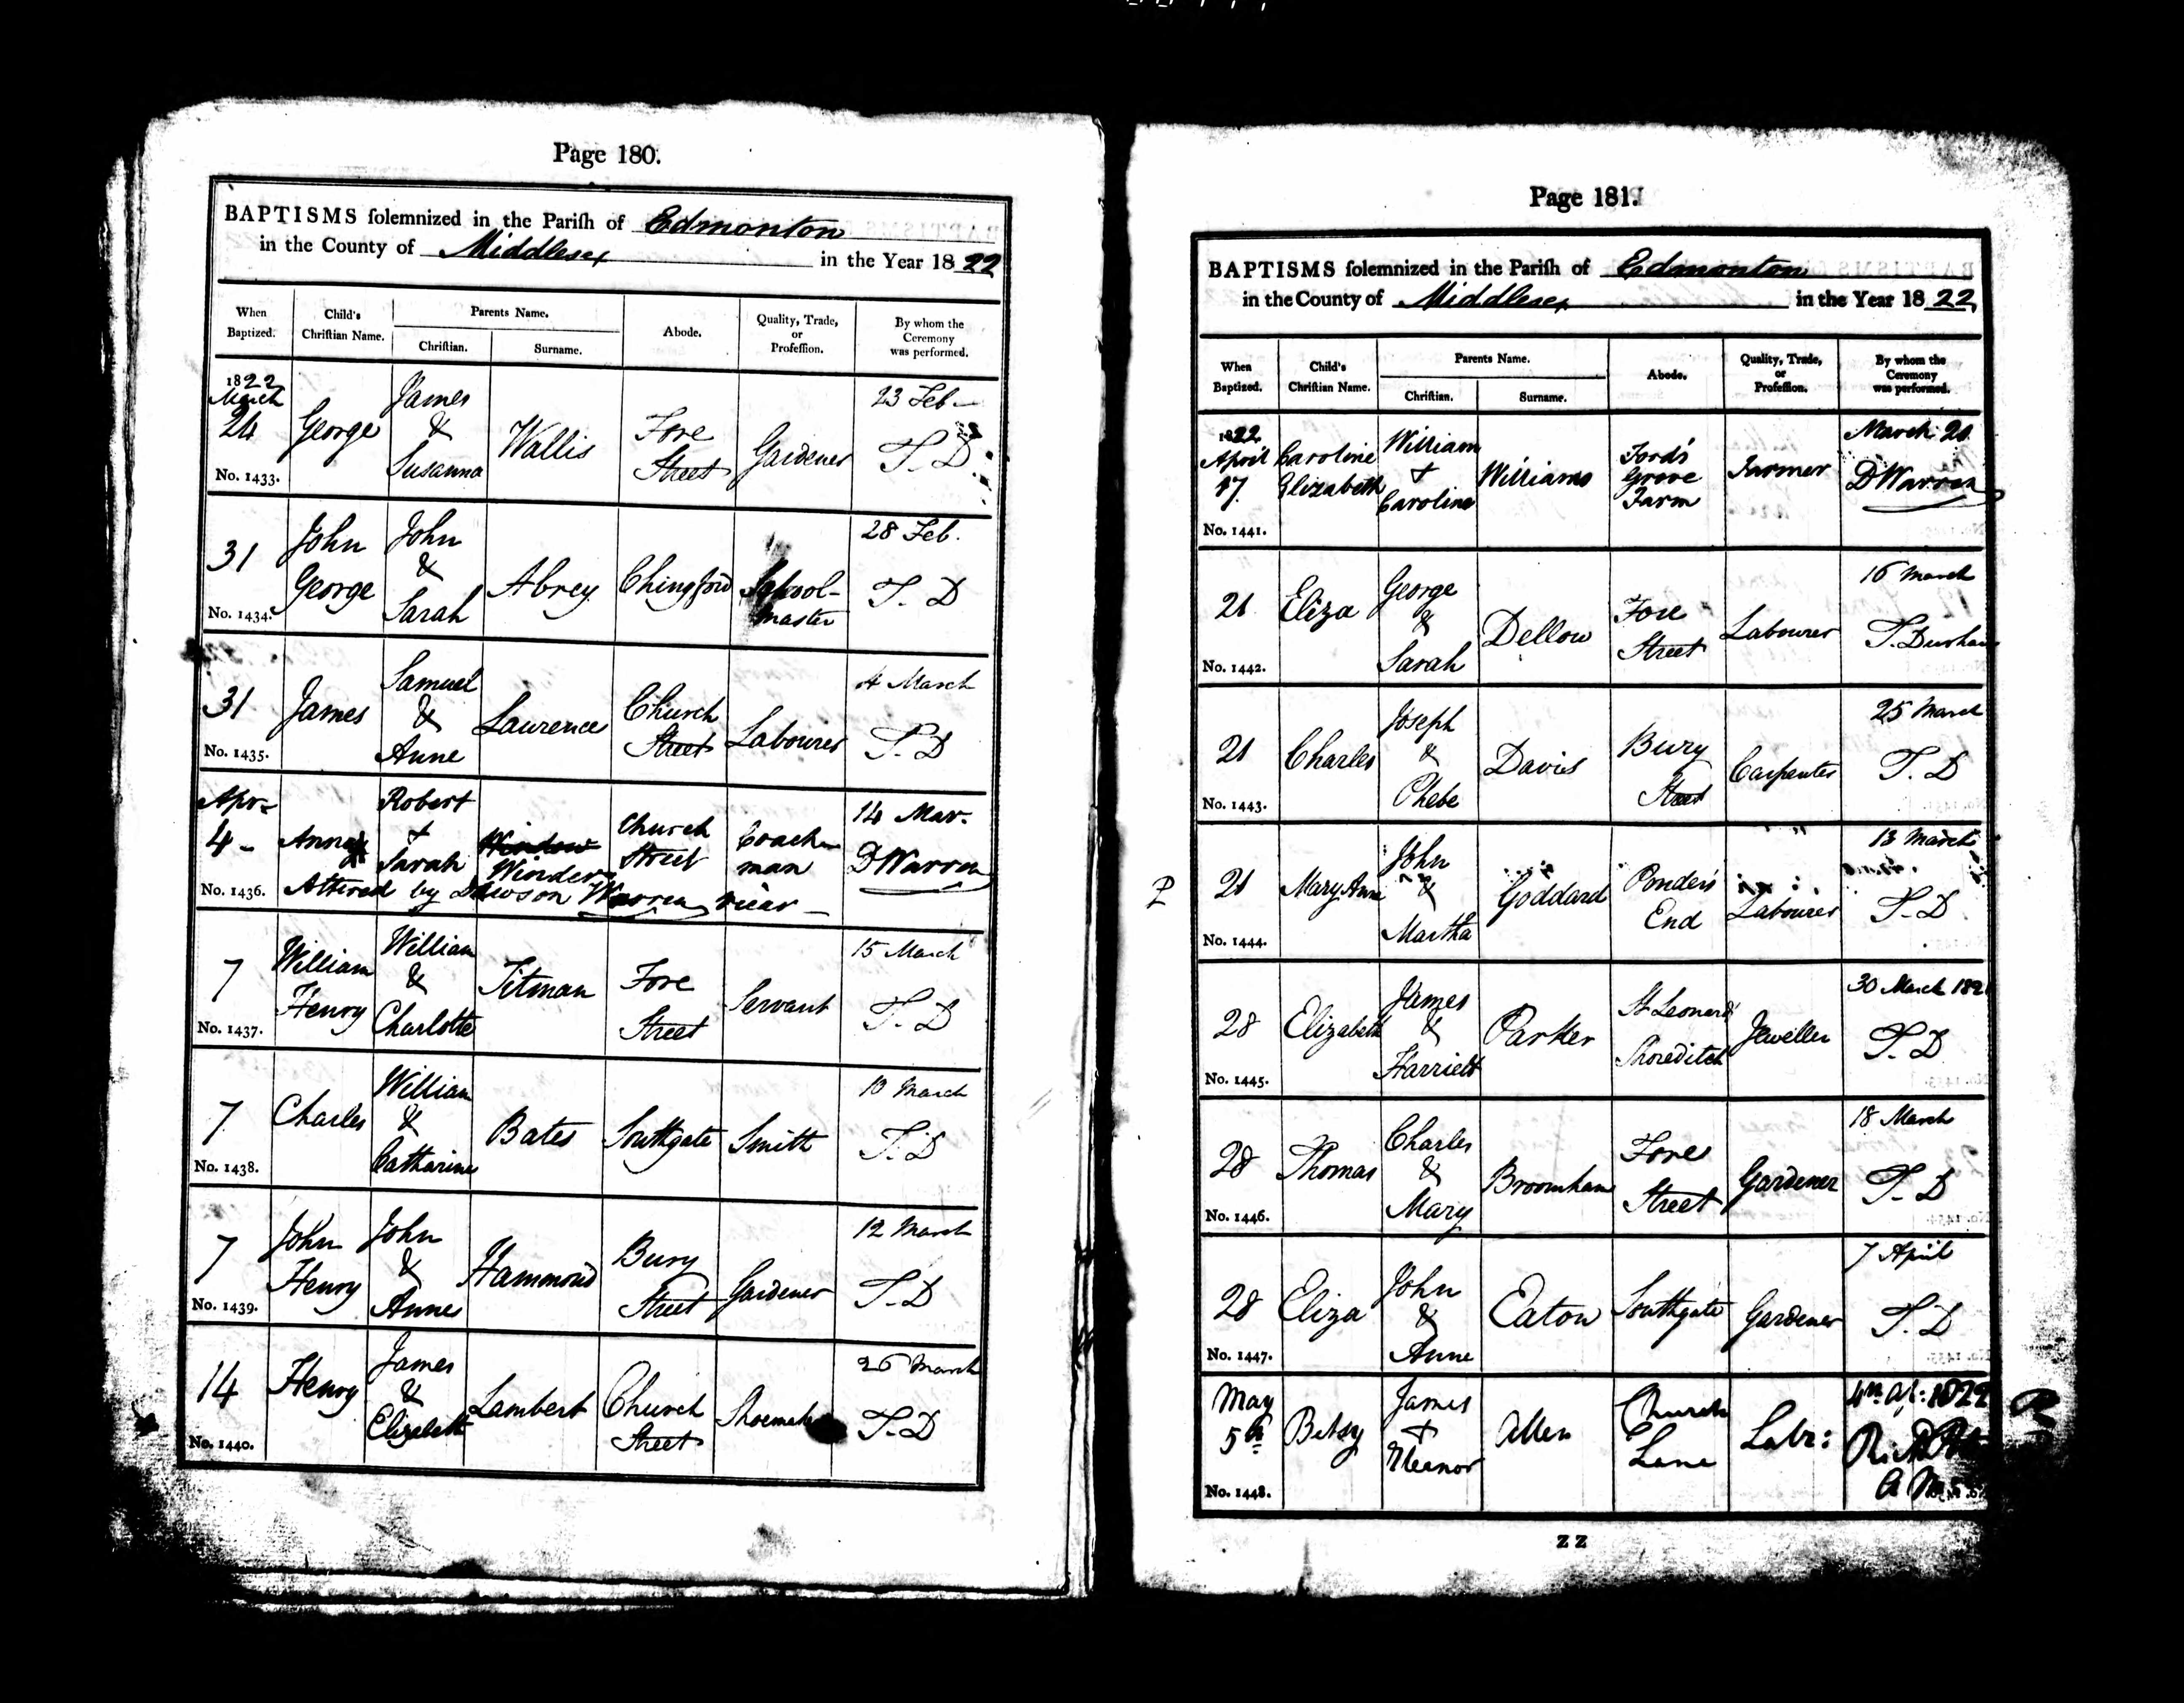 Page 180.
BAPTISMS ſolemnized in the Pariſh of Edmonton
in the County of Middlesex in the Year 18 22
When Baptized. Child's Chriſtian Name. Parents Name. Chriſtian. Surname. Abode. Quality, Trade, or Profeſſion. By whom the Ceremony was performed.
1822 March 24 No. 1433. George James & Susanna Wallis Fore Street Gardener 23 Feb T. D.
31 No. 1434. John George John & Sarah Abrey Chingford School-master 28 Feb. T. D
31 No. 1435. James Samuel & Anne Laurence Church Street Labourer 4 March T. D
Apr- 4- No. 1436. Anna Robert + Sarah Window Winder Church Street Coachman 14 Mar. D Warren
Altered by Dawson Warren vicar-
7 No. 1437. William Henry William & Charlotte Titman Fore Street Servant 15 March T. D
7 No. 1438. Charles William & Catharine Bates Southgate Smith 10 March T. D
7 No. 1439. John Henry John & Anne Hammond Bury Street Gardener 12 March T. D
14 No. 1440. Henry James & Elizabeth Lambert Church Street Shoemaker 26 March T. D
Page 181.
BAPTISMS ſolemnized in the Pariſh of Edmonton
in the County of Middlesex in the Year 18 22
When Baptized. Child's Chriſtian Name. Parents Name. Chriſtian. Surname. Abode. Quality, Trade, or Profeſſion. By whom the Ceremony was performed.
1822 April 17 No. 1441. Caroline Elizabeth William + Caroline Williams Ford's Grove Farm Farmer March 20 D Warren
21 No. 1442. Eliza George & Sarah Dellow Fore Street Labourer 16 March T. Durham
21 No. 1443. Charles Joseph & Phebe Davis Bury Street Carpenter 25 March T. D
21 No. 1444. Mary Ann John & Martha Goddard Ponders End Labourer 13 March T. D
28 No. 1445. Elizabeth James & Harriett Parker St Leonard Shoreditch Jeweller 30 March 182 T. D
28 No. 1446. Thomas Charles & Mary Broomham Fore Street Gardener 18 March T. D
28 No. 1447. Eliza John & Anne Eaton Southgate Gardener 7 April T. D
May 5th No. 1448. Betsy James + Eleanor Allen Church Lane Labr: 1822 A M
Z Z